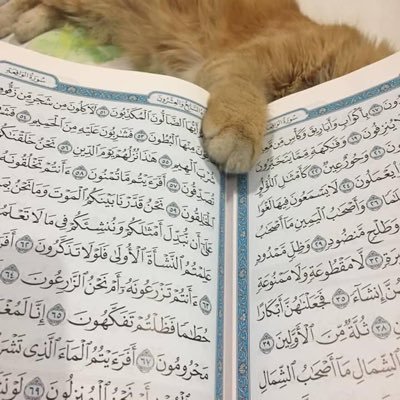 سُورَةُ الوَاقِعَةِ
بِأَكْوَابٍ وَأَبَارِيقَ وَكَأْسٍ مِّن
يُنزِفُونَ ١٩ وَفَٰكِهَةٍ مِّمَّا يَتَخَيَّرُونَ
٢١ وَحُورٌ عِينٌ ٢٢ كَأَمْثَٰلِ ٱللُّؤْلُؤِ
يَعْمَلُونَ ٢٤ لَا يَسْمَعُونَ فِيهَا لَغْوًا
وَأَصْحَٰبُ ٱلْيَمِينِ مَآ أَصْحَٰبُ
وَطَلْحٍ مَّنضُودٍ ٢٩ وَظِلٍّ مَّمْدُودٍ
لَّا مَقْطُوعَةٍ وَلَا مَمْنُوعَةٍ
إِنشَآءً ٣٥ فَجَعَلْنَٰهُنَّ أَبْكَارًا
٣٨ ثُلَّةٌ مِّنَ ٱلْأَوَّلِينَ ٣٩
ٱلشِّمَالِ مَآ أَصْحَٰبُ ٱلشِّمَالِ
السَّابِعُ وَالعِشْرُونَ سُورَةُ الوَاقِعَةِ
أَيُّهَا ٱلضَّآلُّونَ ٱلْمُكَذِّبُونَ ٥١ لَأَكِلُونَ مِن شَجَرٍ مِّن زَقُّومٍ
مِنْهَا ٱلْبُطُونَ ٥٣ فَشَٰرِبُونَ عَلَيْهِ مِنَ ٱلْحَمِيمِ
ٱلْهِيمِ ٥٥ هَٰذَا نُزُلُهُمْ يَوْمَ ٱلدِّينِ ٥٦ نَحْنُ خَلَقْنَٰكُمْ
تُصَدِّقُونَ ٥٧ أَفَرَءَيْتُم مَّا تُمْنُونَ ٥٨ ءَأَنتُمْ تَخْلُقُونَهُۥٓ
ٱلْخَٰلِقُونَ ٥٩ نَحْنُ قَدَّرْنَا بَيْنَكُمُ ٱلْمَوْتَ وَمَا نَحْنُ
عَلَىٰٓ أَن نُّبَدِّلَ أَمْثَٰلَكُمْ وَنُنشِئَكُمْ فِى مَا لَا تَعْلَمُونَ
عَلِمْتُمُ ٱلنَّشْأَةَ ٱلْأُولَىٰ فَلَوْلَا تَذَكَّرُونَ ٦٢
٦٣ ءَأَنتُمْ تَزْرَعُونَهُۥٓ أَمْ نَحْنُ ٱلزَّٰرِعُونَ ٦٤
حُطَٰمًا فَظَلْتُمْ تَفَكَّهُونَ ٦٥ إِنَّا لَمُغْرَمُونَ
مَحْرُومُونَ ٦٧ أَفَرَءَيْتُمُ ٱلْمَآءَ ٱلَّذِى تَشْرَبُونَ
أَمْ نَحْنُ ٱلْمُنزِلُونَ ٦٩ لَوْ نَشَآءُ